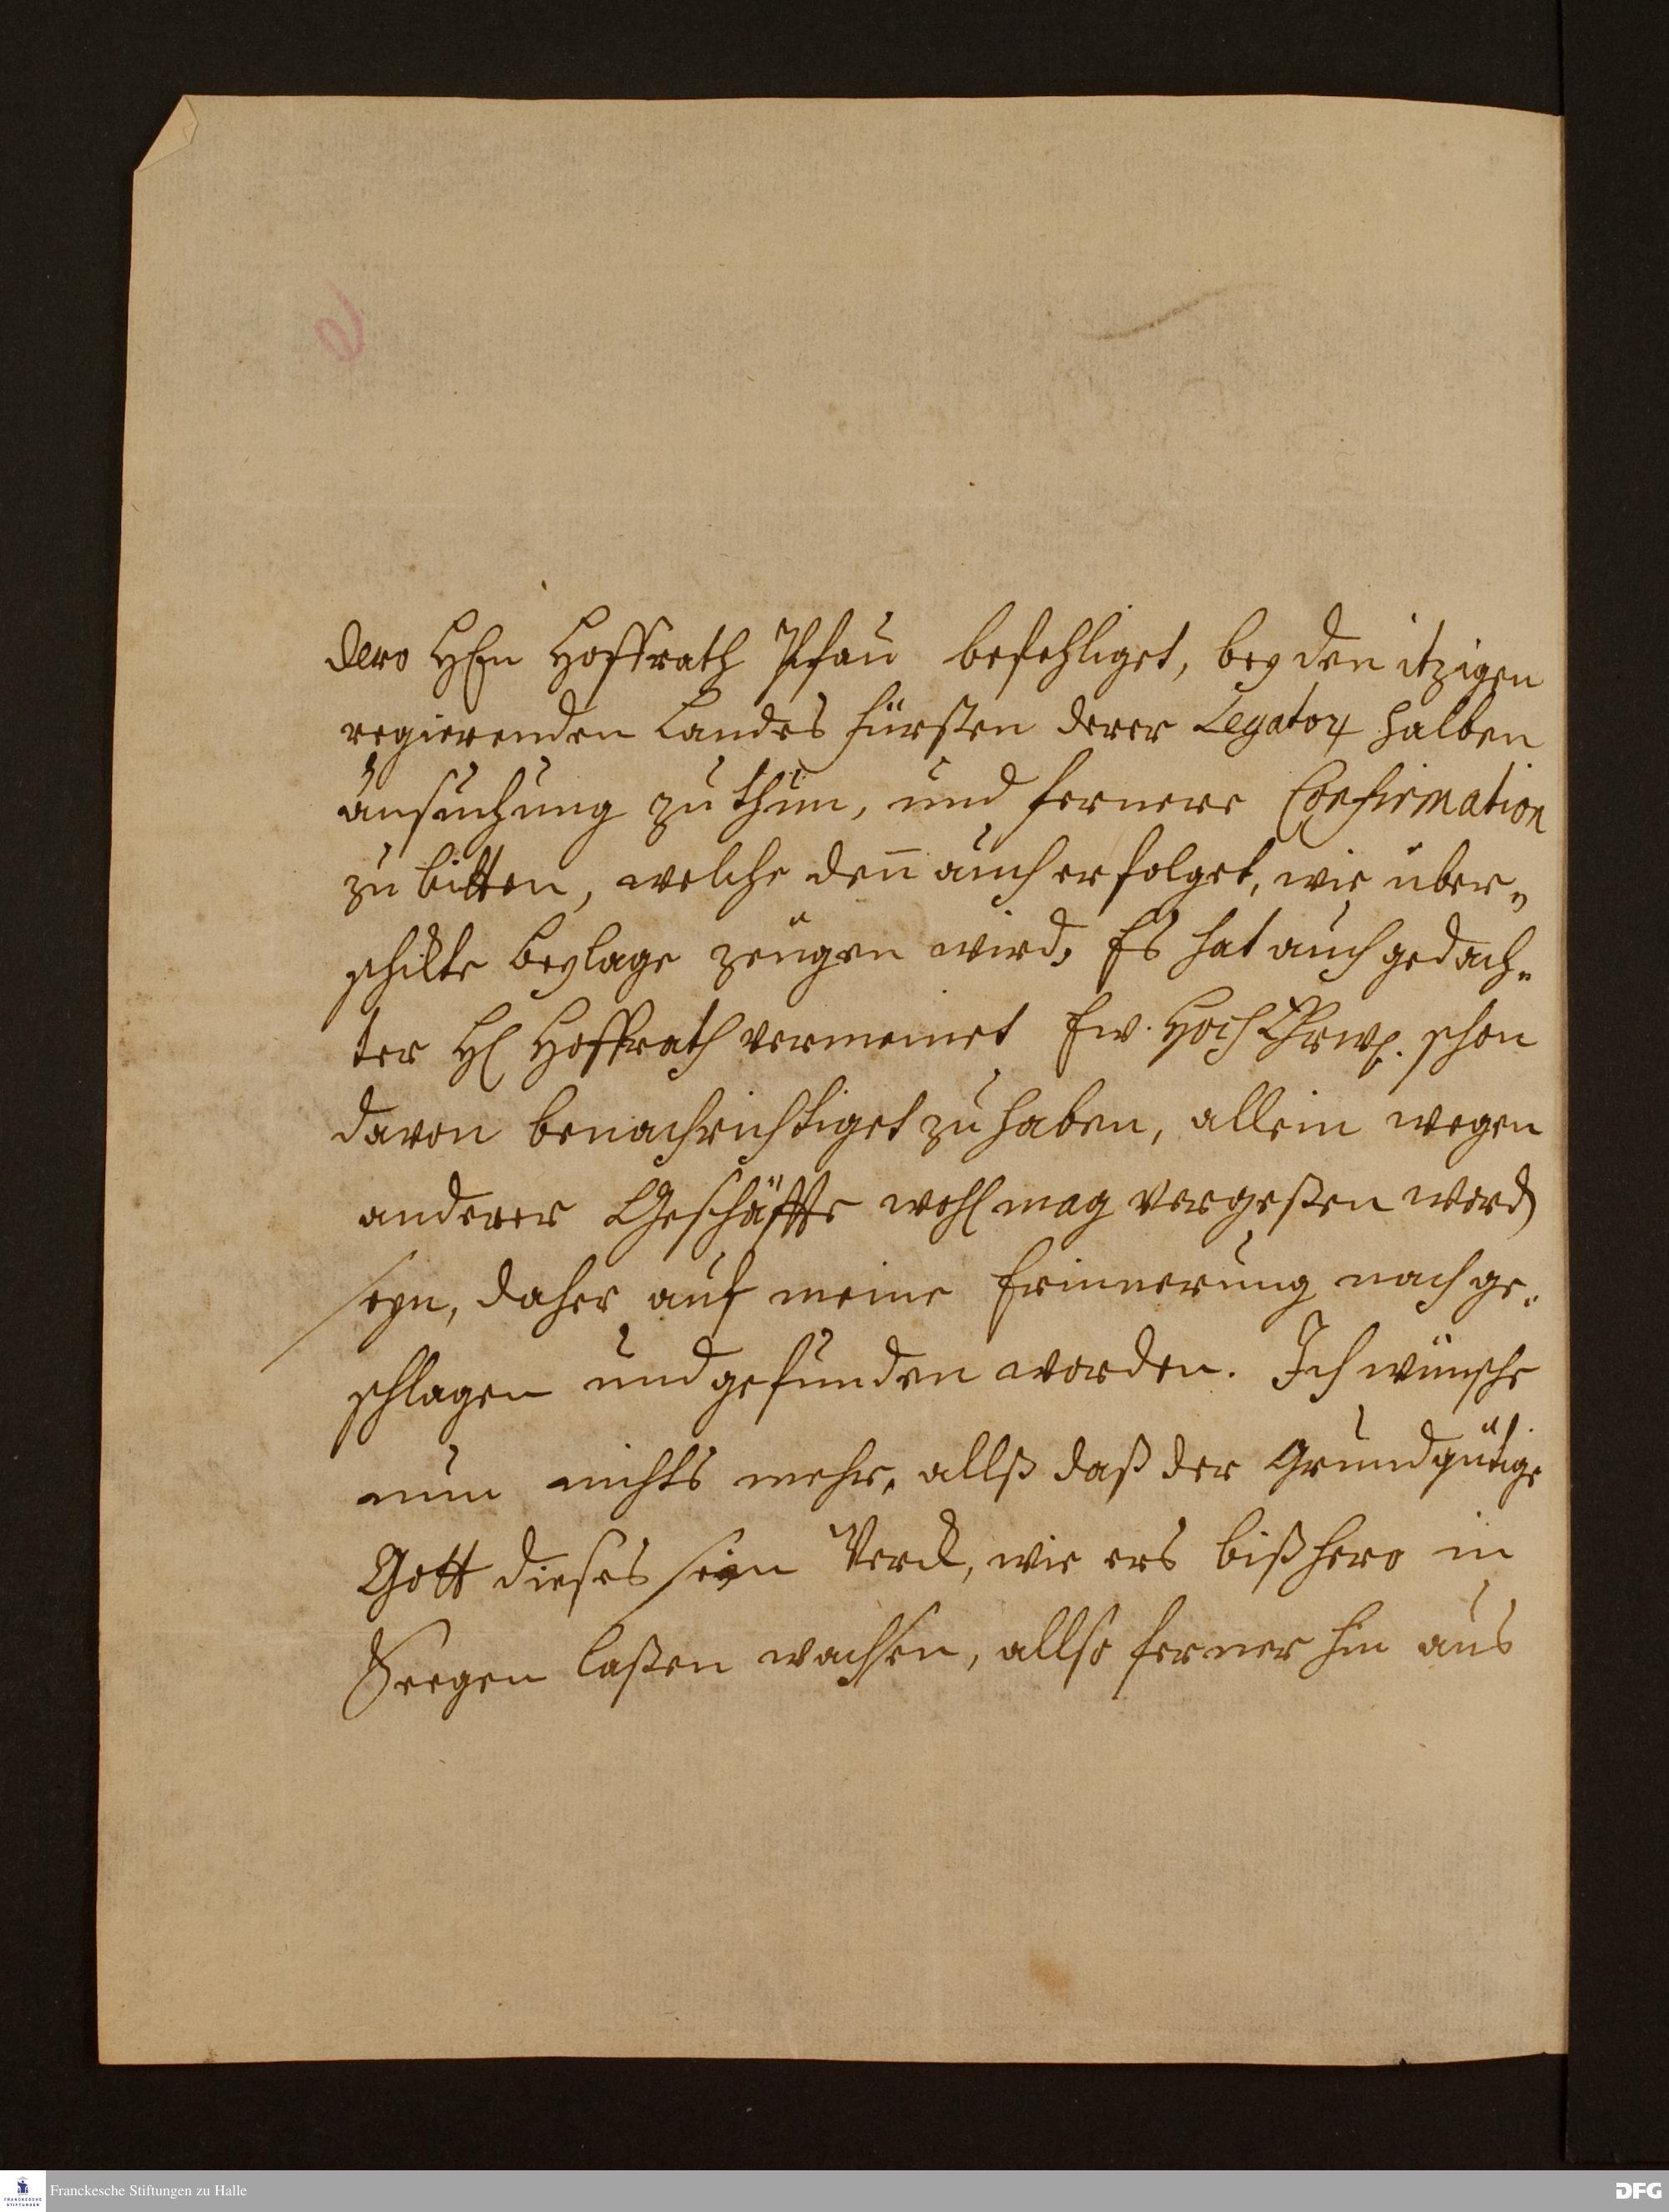 dero HEn Hoffrath Pfau befehliget, bey den itzigen
regierenden Landes fürsten derer Legator halben
ansuchung zu thun, und fernere Confirmation
zu bitten, welche den̅ auch erfolget, wie über„
schikte beylage zeugen wird, Es hat auch gedach„
ter H Hoffrath vermeinet Ew. Hoch Ehrw. schon
davon benachrichtiget zu haben, allein wegen
anderer Geschäffte wohl mag vergeßen word
seyn, daher auf meine Erinnerung nach ge„
schlagen und gefunden worden. Ich wünsche
nun nichts mehr, allß daß der Grundgütige
Gott dieses sein Werck, wie ers bißhero in
Seegen laßen wachsen, allso ferner hin aus
Franckesche Stiftungen zu Halle
FRANCKESCHE STIFTUNGEN
DFG